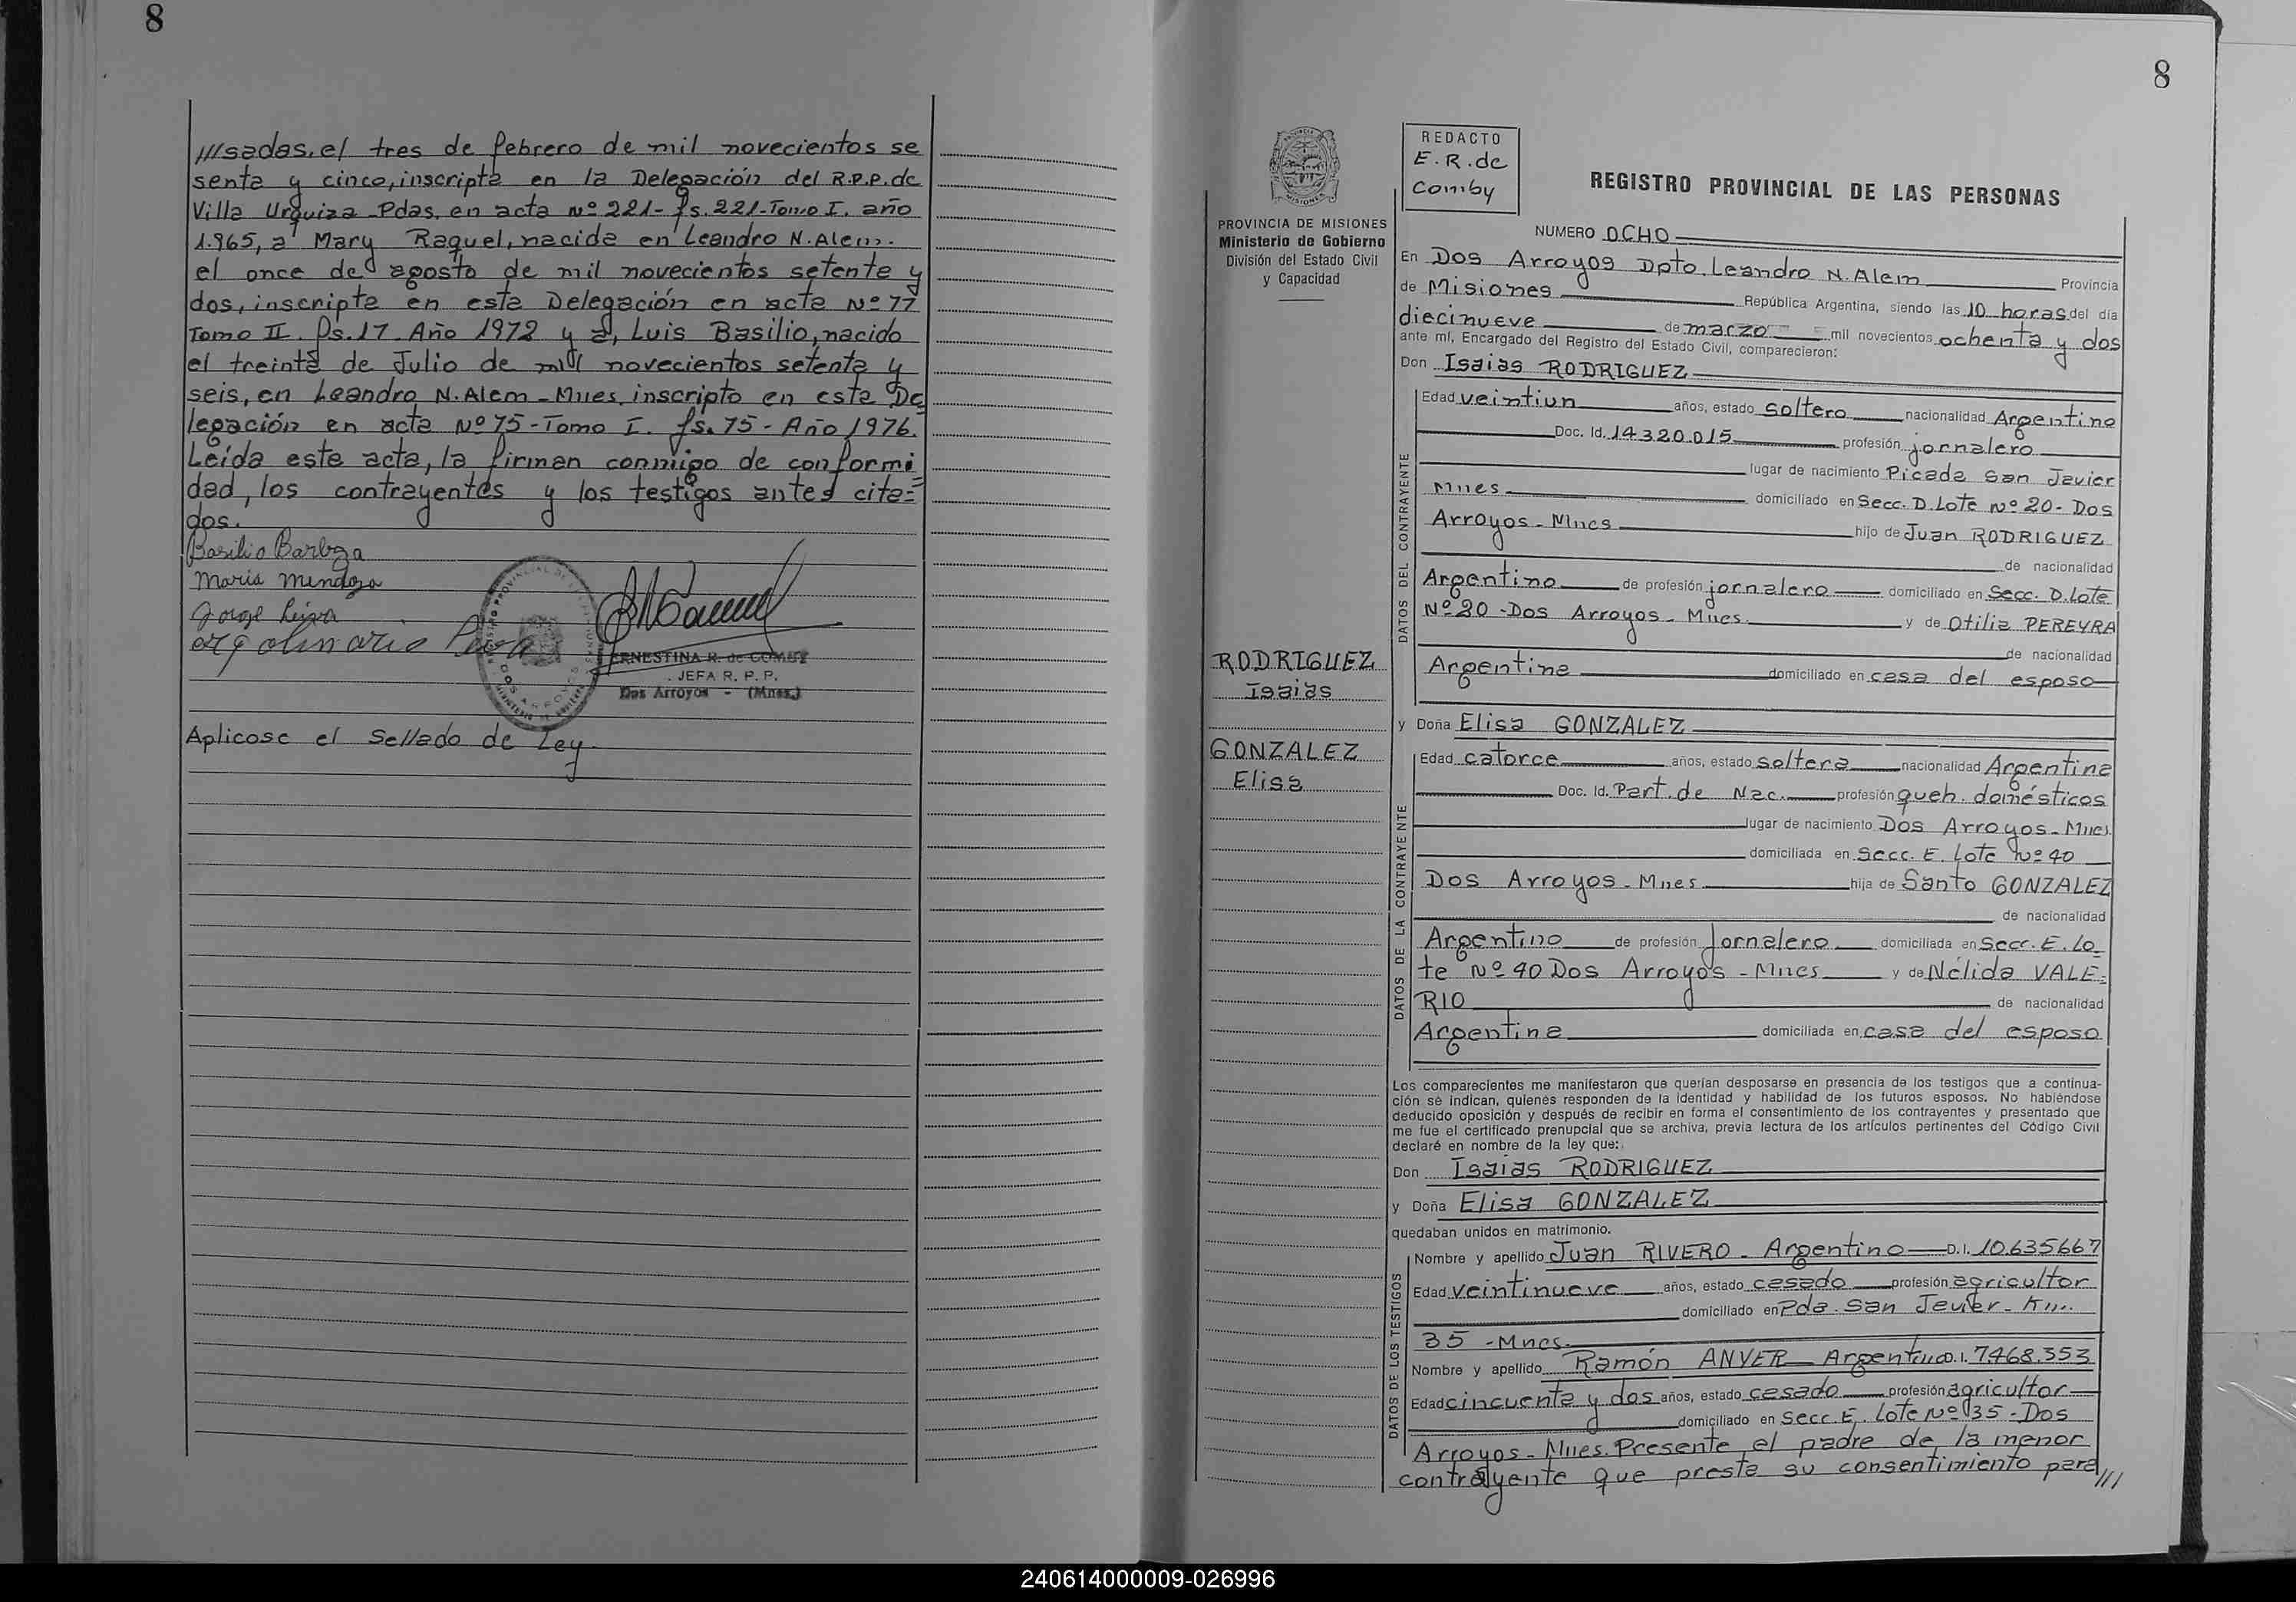 8
///sadas, el tres de febrero de mil novecientos se
senta y cinco, inscripta en la Delegación del R.P.P. de
Villa Urquiza-Pdas. en acta Nº 221- fs. 221-Tomo I. año
1.965, a Mary Raquel, nacida en Leandro N. Alem.
el once de agosto de mil novecientos setenta y
dos, inscripta en esta Delegación en acta Nº 77
Tomo II. fs. 17. Año 1972 y a, Luis Basilio, nacido
el treinta de Julio de mil novecientos setenta y
seis, en Leandro N. Alem - Mnes. inscripto en esta De
legación en acta Nº 75 - Tomo I. fs. 75 - Año 1976.
Leída este acta, la firman conmigo de conformi
dad, los contrayentes y los testigos antes cita=
dos.
Basilio Barboza
Maria Mendoza
Jorge Leiva
ERNESTINA R. de COMBY
JEFA R. P. P.
Dos Arroyos - (Mnes.)
Aplicose el Sellado de Ley.
8
PROVINCIA DE MISIONES
Ministerio de Gobierno
División del Estado Civil
y Capacidad
REDACTO
E. R. de
Comby
REGISTRO PROVINCIAL DE LAS PERSONAS
NUMERO OCHO
En Dos Arroyos Dpto. Leandro N. Alem Provincia
de Misiones República Argentina, siendo las 10 horas del día
diecinueve de marzo mil novecientos ochenta y dos
ante mí, Encargado del Registro del Estado Civil, comparecieron:
Don Isaias RODRIGUEZ
DATOS DEL CONTRAYENTE
Edad veintiun años, estado soltero nacionalidad Argentino
Doc. Id. 14.320.015 profesión jornalero
lugar de nacimiento Picada San Javier
Mnes domiciliado en Secc. D. Lote Nº 20- Dos
Arroyos - Mnes hijo de Juan RODRIGUEZ
de nacionalidad
Argentino de profesión jornalero domiciliado en Secc. D. Lote
Nº 20 - Dos Arroyos - Mnes. y de Otilia PEREYRA
de nacionalidad
Argentina domiciliado en casa del esposo
RODRIGUEZ
Isaias
GONZALEZ
Elisa
y Doña Elisa GONZALEZ
DATOS DE LA CONTRAYENTE
Edad catorce años, estado soltera nacionalidad Argentina
Doc. Id. Part. de Nac. profesión queh. domésticos
lugar de nacimiento Dos Arroyos - Mnes
domiciliada en Secc. E. Lote Nº 40
Dos Arroyos - Mnes hija de Santo GONZALEZ
de nacionalidad
Argentino de profesión Jornalero domiciliada en Secc. E. Lo
te Nº 40 Dos Arroyos - Mnes y de Nélida VALE=
RIO de nacionalidad
Argentina domiciliada en casa del esposo
Los comparecientes me manifestaron que querían desposarse en presencia de los testigos que a continua-
ción se indican, quienes responden de la identidad y habilidad de los futuros esposos. No habiéndose
deducido oposición y después de recibir en forma el consentimiento de los contrayentes y presentado que
me fue el certificado prenupcial que se archiva, previa lectura de los artículos pertinentes del Código Civil
declaré en nombre de la ley que:
Don Isaias RODRIGUEZ
y Doña Elisa GONZALEZ
quedaban unidos en matrimonio.
DATOS DE LOS TESTIGOS
Nombre y apellido Juan RIVERO - Argentino D.I. 10.635667
Edad veintinueve años, estado casado profesión agricultor
domiciliado en Pda. San Javier - Km.
35 - Mnes.
Nombre y apellido Ramón ANVER Argentino D.I. 7.468.353
Edad cincuenta y dos años, estado casado profesión agricultor
domiciliado en Secc. E. Lote Nº 35 - Dos
Arroyos - Mnes. Presente el padre de la menor
contrayente que presta su consentimiento para///
240614000009-026996